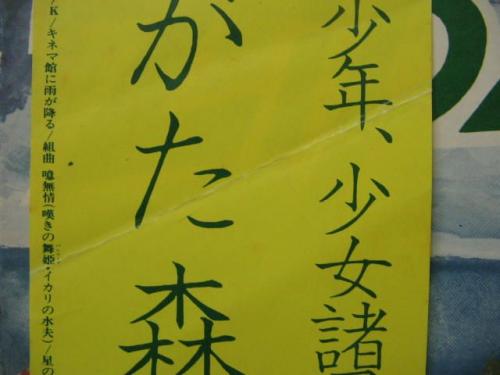 少年、少女諸
がた森
K/キネマ館に雨が降る/組曲 噫無情(嘆きの舞姫・イカリの水夫)/星の